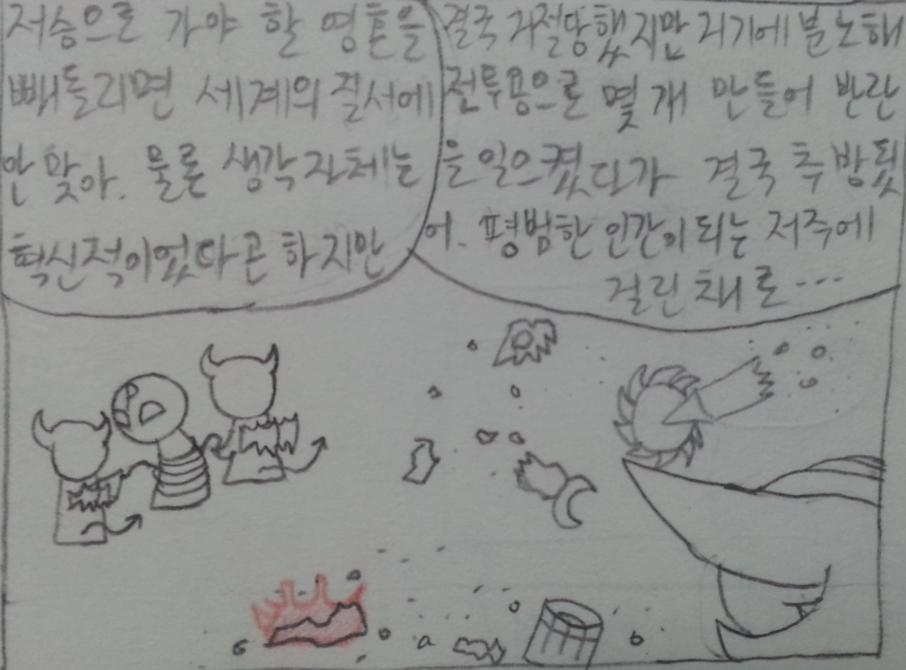 저승으로 가야 할 영혼을
빼돌리면 세계의 질서에
안 맞아. 물론 생각 자체는
혁신적이었다곤 하지만
결국 거절당했지만 거기에 분노해
전투용으로 몇 개 만들어 반란
을 일으켰다가 결국 추방됬
어. 평범한 인간이 되는 저주에
걸린 채로…